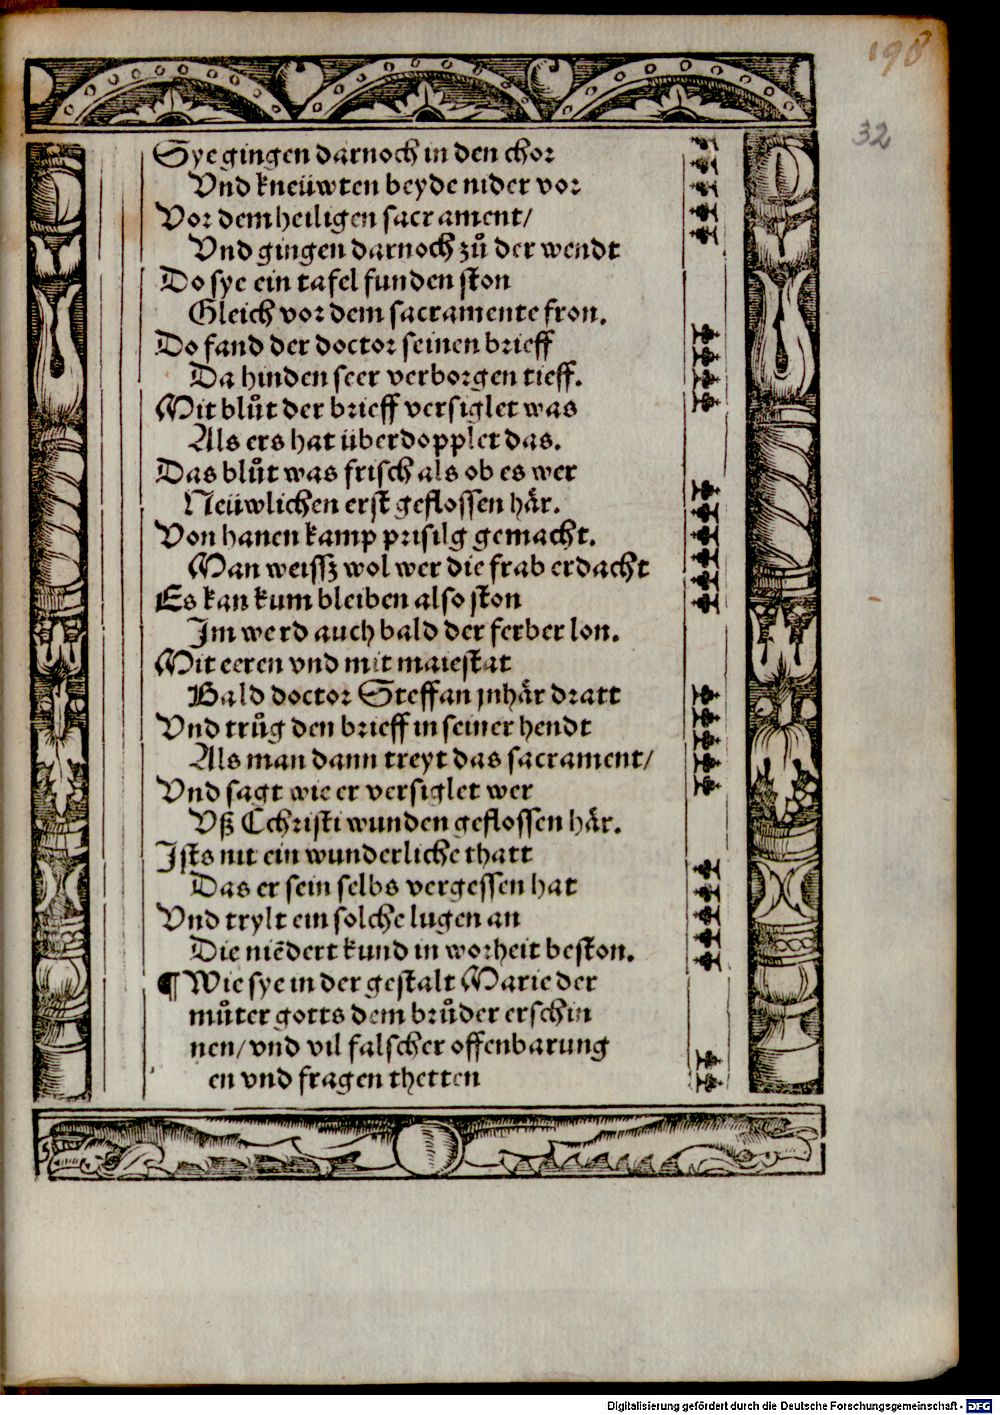 198
32
Sye gingen darnoch in den chor
Vnd kneüwten beyde nider vor
Vor dem heiligen sacrament/
Vnd gingen darnoch zů der wendt
Do sye ein tafel funden ston
Gleich vor dem sacramente fron.
Do fand der doctor seinen brieff
Da hinden seer verborgen tieff.
Mit blůt der brieff versiglet was
Als ers hat überdopplet das.
Das blůt was frisch als ob es wer
Neüwlichen erst geflossen här.
Von hanen kamp prisilg gemacht.
Man weissz wol wer die frab erdacht
Es kan kum bleiben also ston
Im werd auch bald der ferber lon.
Mit eeren vnd mit maiestat
Bald doctor Steffan jnhär dratt
Vnd trůg den brieff in seiner hendt
Als man dann treyt das sacrament/
Vnd sagt wie er versiglet wer
Vß Cchristi wunden geflossen här.
Ists nit ein wunderliche thatt
Das er sein selbs vergessen hat
Vnd trylt ein solche lugen an
Die niẽdert kund in worheit beston.
¶ Wie sye in der gestalt Marie der
můter gotts dem brůder erschin
nen/ vnd vil falscher offenbarung
en vnd fragen thetten
Digitalisierung gefördert durch die Deutsche Forschungsgemeinschaft - DFG